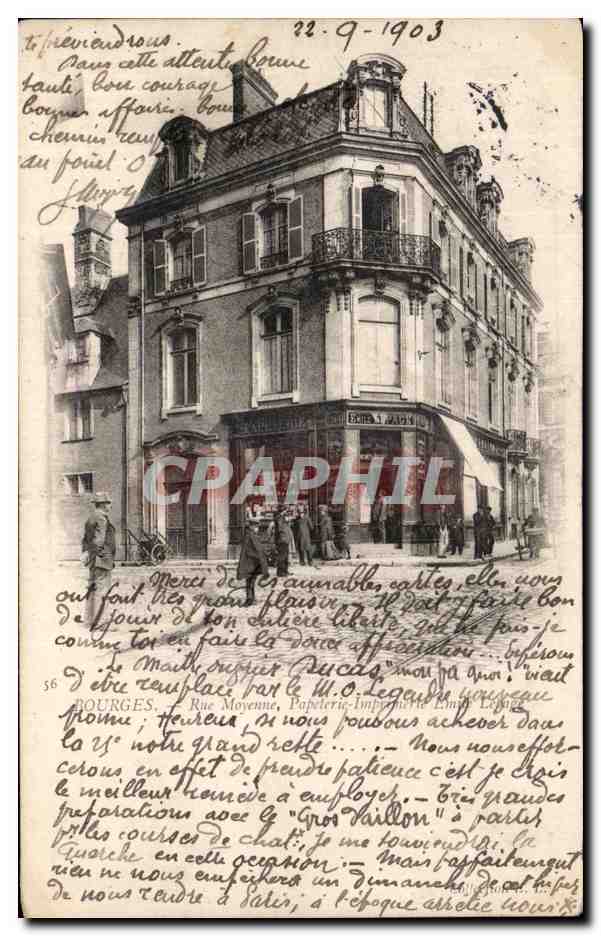 22-9-1903
te préviendrons.
Dans cette attente bonne
santé, bon courage
bonnes affaires. bons
chemins
au fouet
ÉMILE
CPARAPHIL
Merci de tes aimables cartes, elles nous
ont fait très grand plaisir. Il doit y faire bon
de jouir de ton entière liberté, que ne puis-je
comme toi en faire la douce appréciation... espérons
Le Maître ouvrier Ducas, "mon pa quoi." vient
d'être remplacé par le M.O. Legendre nouveau
56 BOURGES. - Rue Moyenne, Papeterie-Imprimerie Emile Lepage
promu; Heureux, si nous pouvons achever dans
la 25e notre grand reste ..... - Nous nous effor-
cerons en effet de prendre patience c'est je crois
le meilleur remède à employer. - Très grandes
préparations avec le "Gros Darllon" à partir
pr les courses de chat.x, je me souviendrai la
en cette occasion. - Mais parfaitement
rien ne nous empêchera un Dimanche de cet hiver
Collection
de nous rendre à Paris, à l'époque arrêtée nous